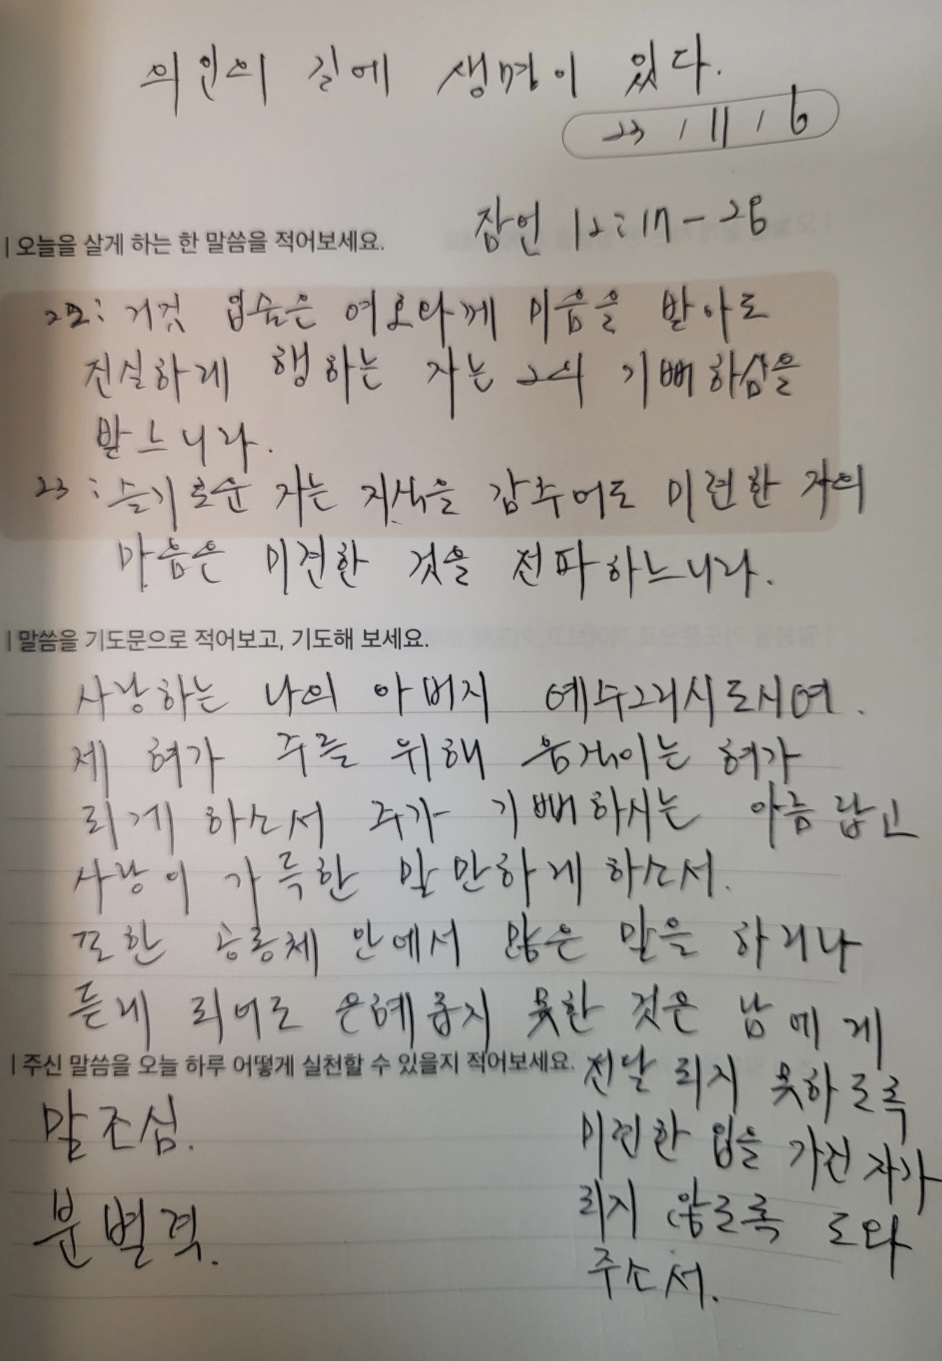 의인의 길에 생명이 있다.
23 / 11 / 6
잠언 12:17-28
오늘을 살게 하는 한 말씀을 적어보세요.
22: 거짓 입술은 여호와께 미움을 받아도
진실하게 행하는 자는 그의 기뻐하심을
받느니라.
23: 슬기로운 자는 지식을 감추어도 미련한 자의
마음은 미련한 것을 전파하느니라.
말씀을 기도문으로 적어보고, 기도해 보세요.
사랑하는 나의 아버지 예수그리스도시여.
제 혀가 주를 위해 움직이는 혀가
되게 하소서 주가 기뻐하시는 아름답고
사랑이 가득한 말만하게 하소서.
또한 공동체 안에서 많은 말을 하거나
듣게 되어도 은혜롭지 못한 것은 남에게
전달 되지 못하도록
미련한 입을 가진 자가
되지 않도록 도와
주소서.
주신 말씀을 오늘 하루 어떻게 실천할 수 있을지 적어보세요.
말조심.
분별력.